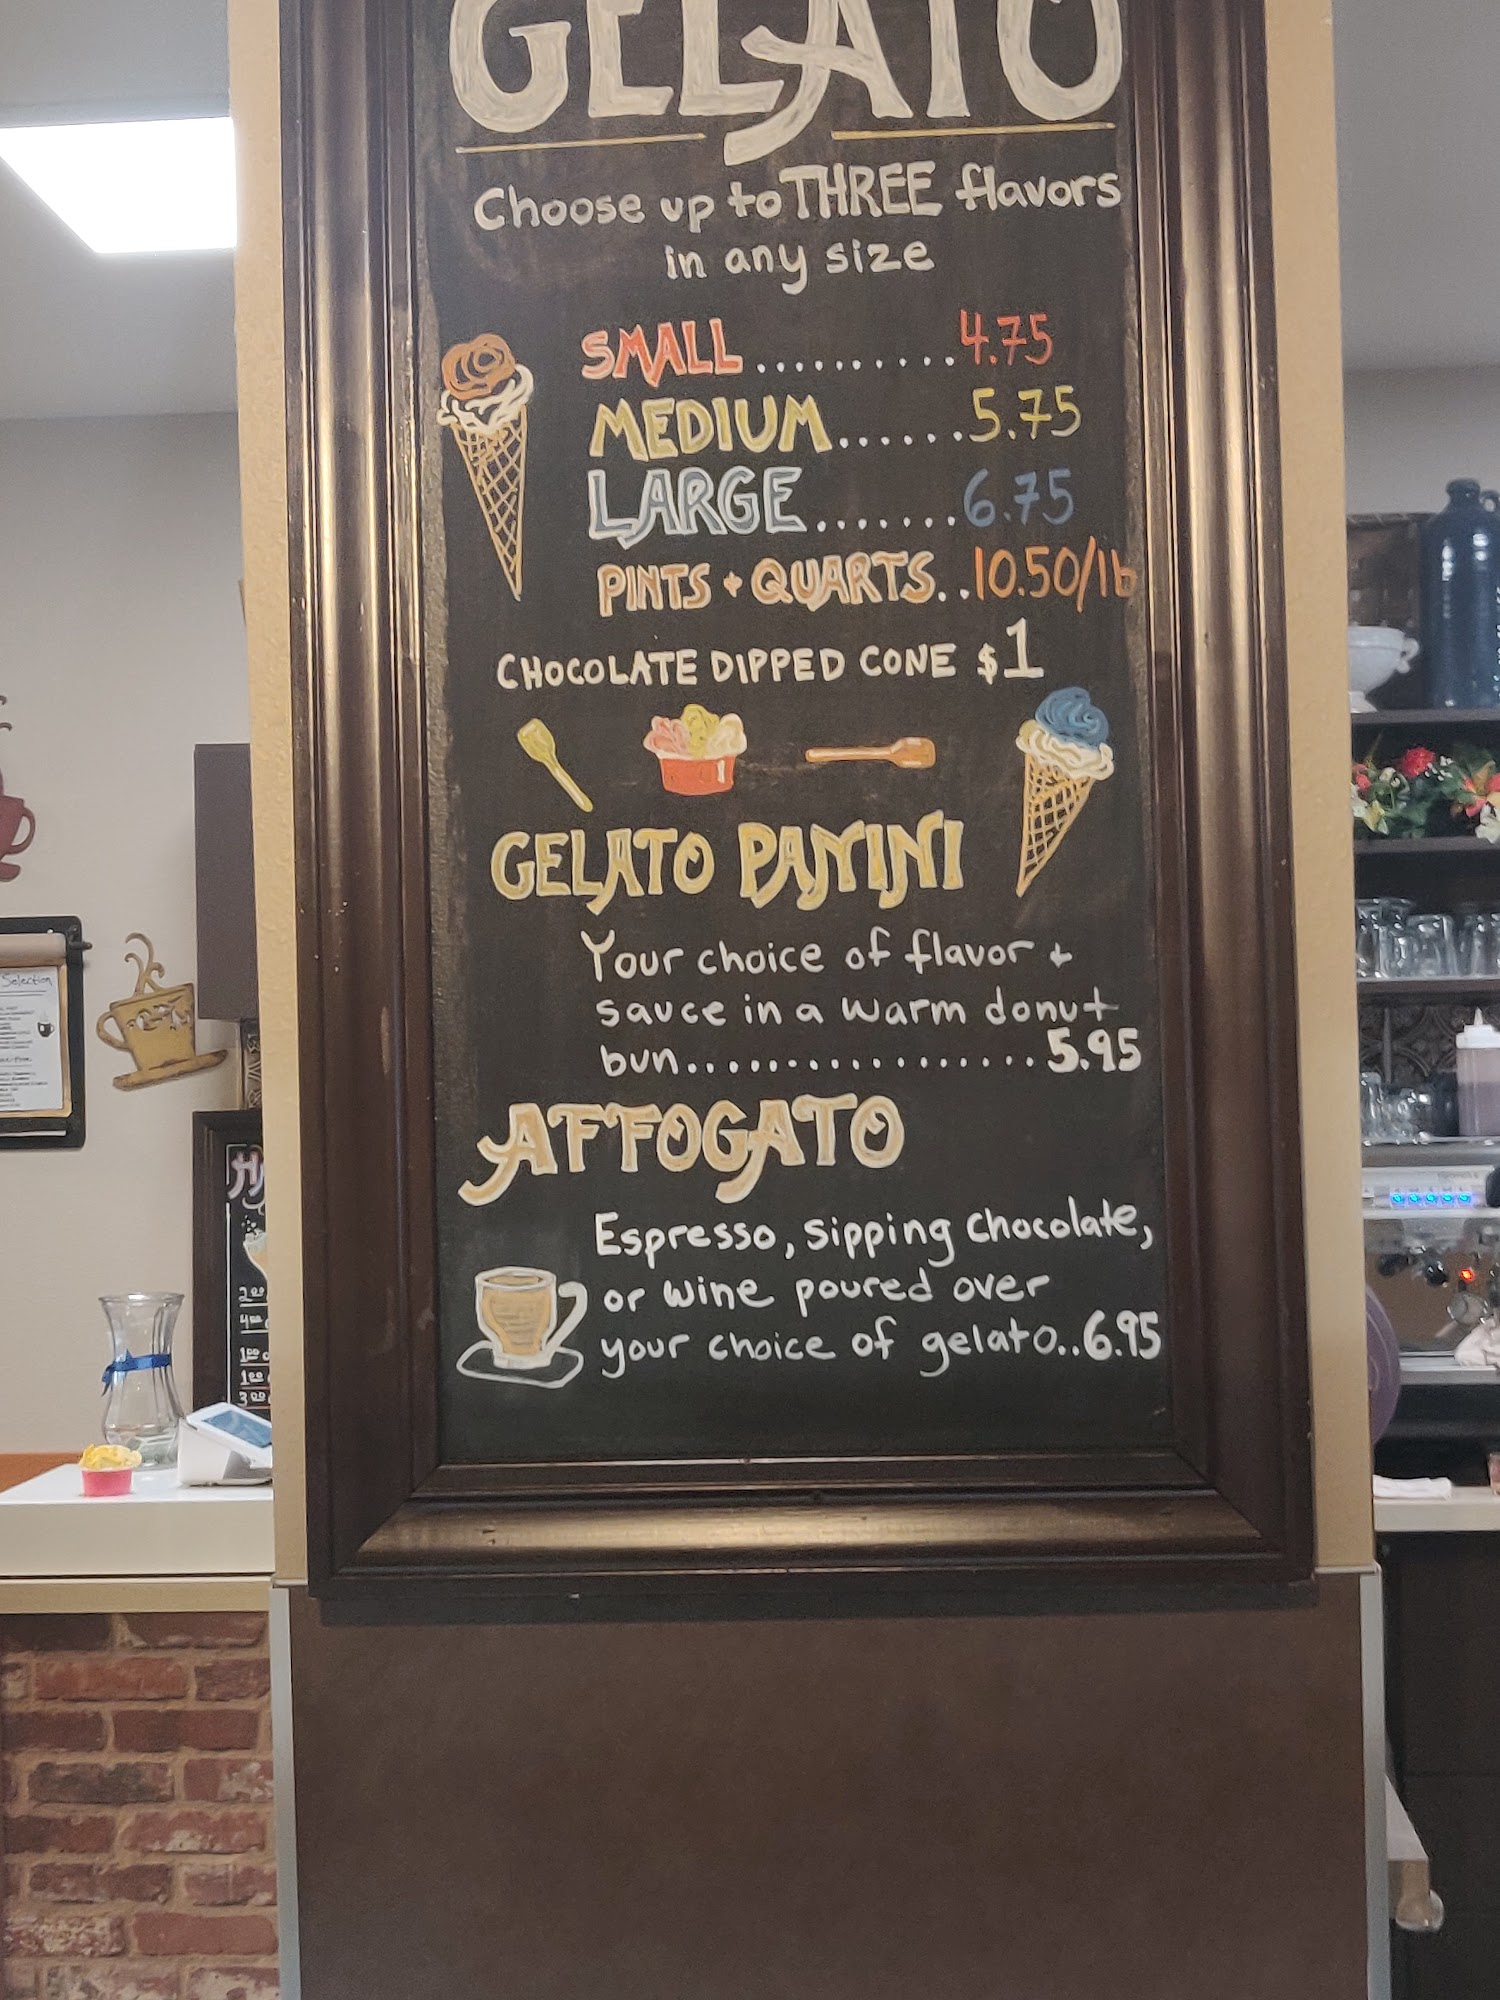 GELATO
Choose up to THREE flavors
in any size
SMALL..........4.75
MEDIUM.......5.75
LARGE.......6.75
PINTS + QUARTS..10.50/lb
CHOCOLATE DIPPED CONE $1
GELATO PANINI
Your choice of flavor +
sauce in a warm donut
bun.................5.95
AFFOGATO
Espresso, sipping chocolate,
or wine poured over
your choice of gelato..6.95
Selection